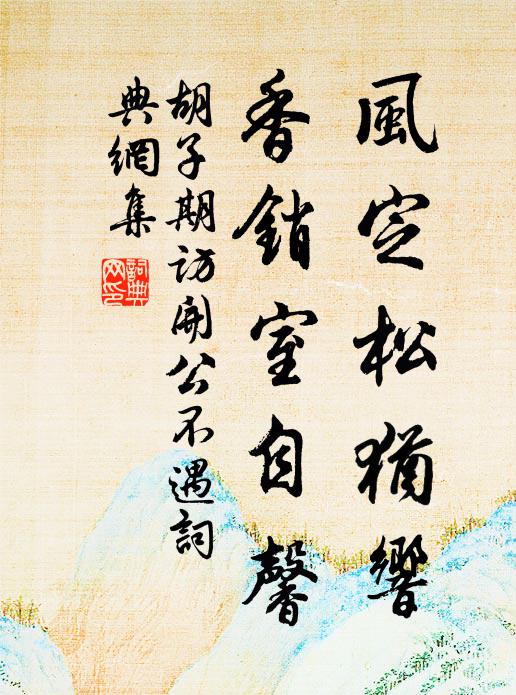 風定松猶響
香銷室自馨
胡子期訪開公不遇詞
典網集
詞典
网印